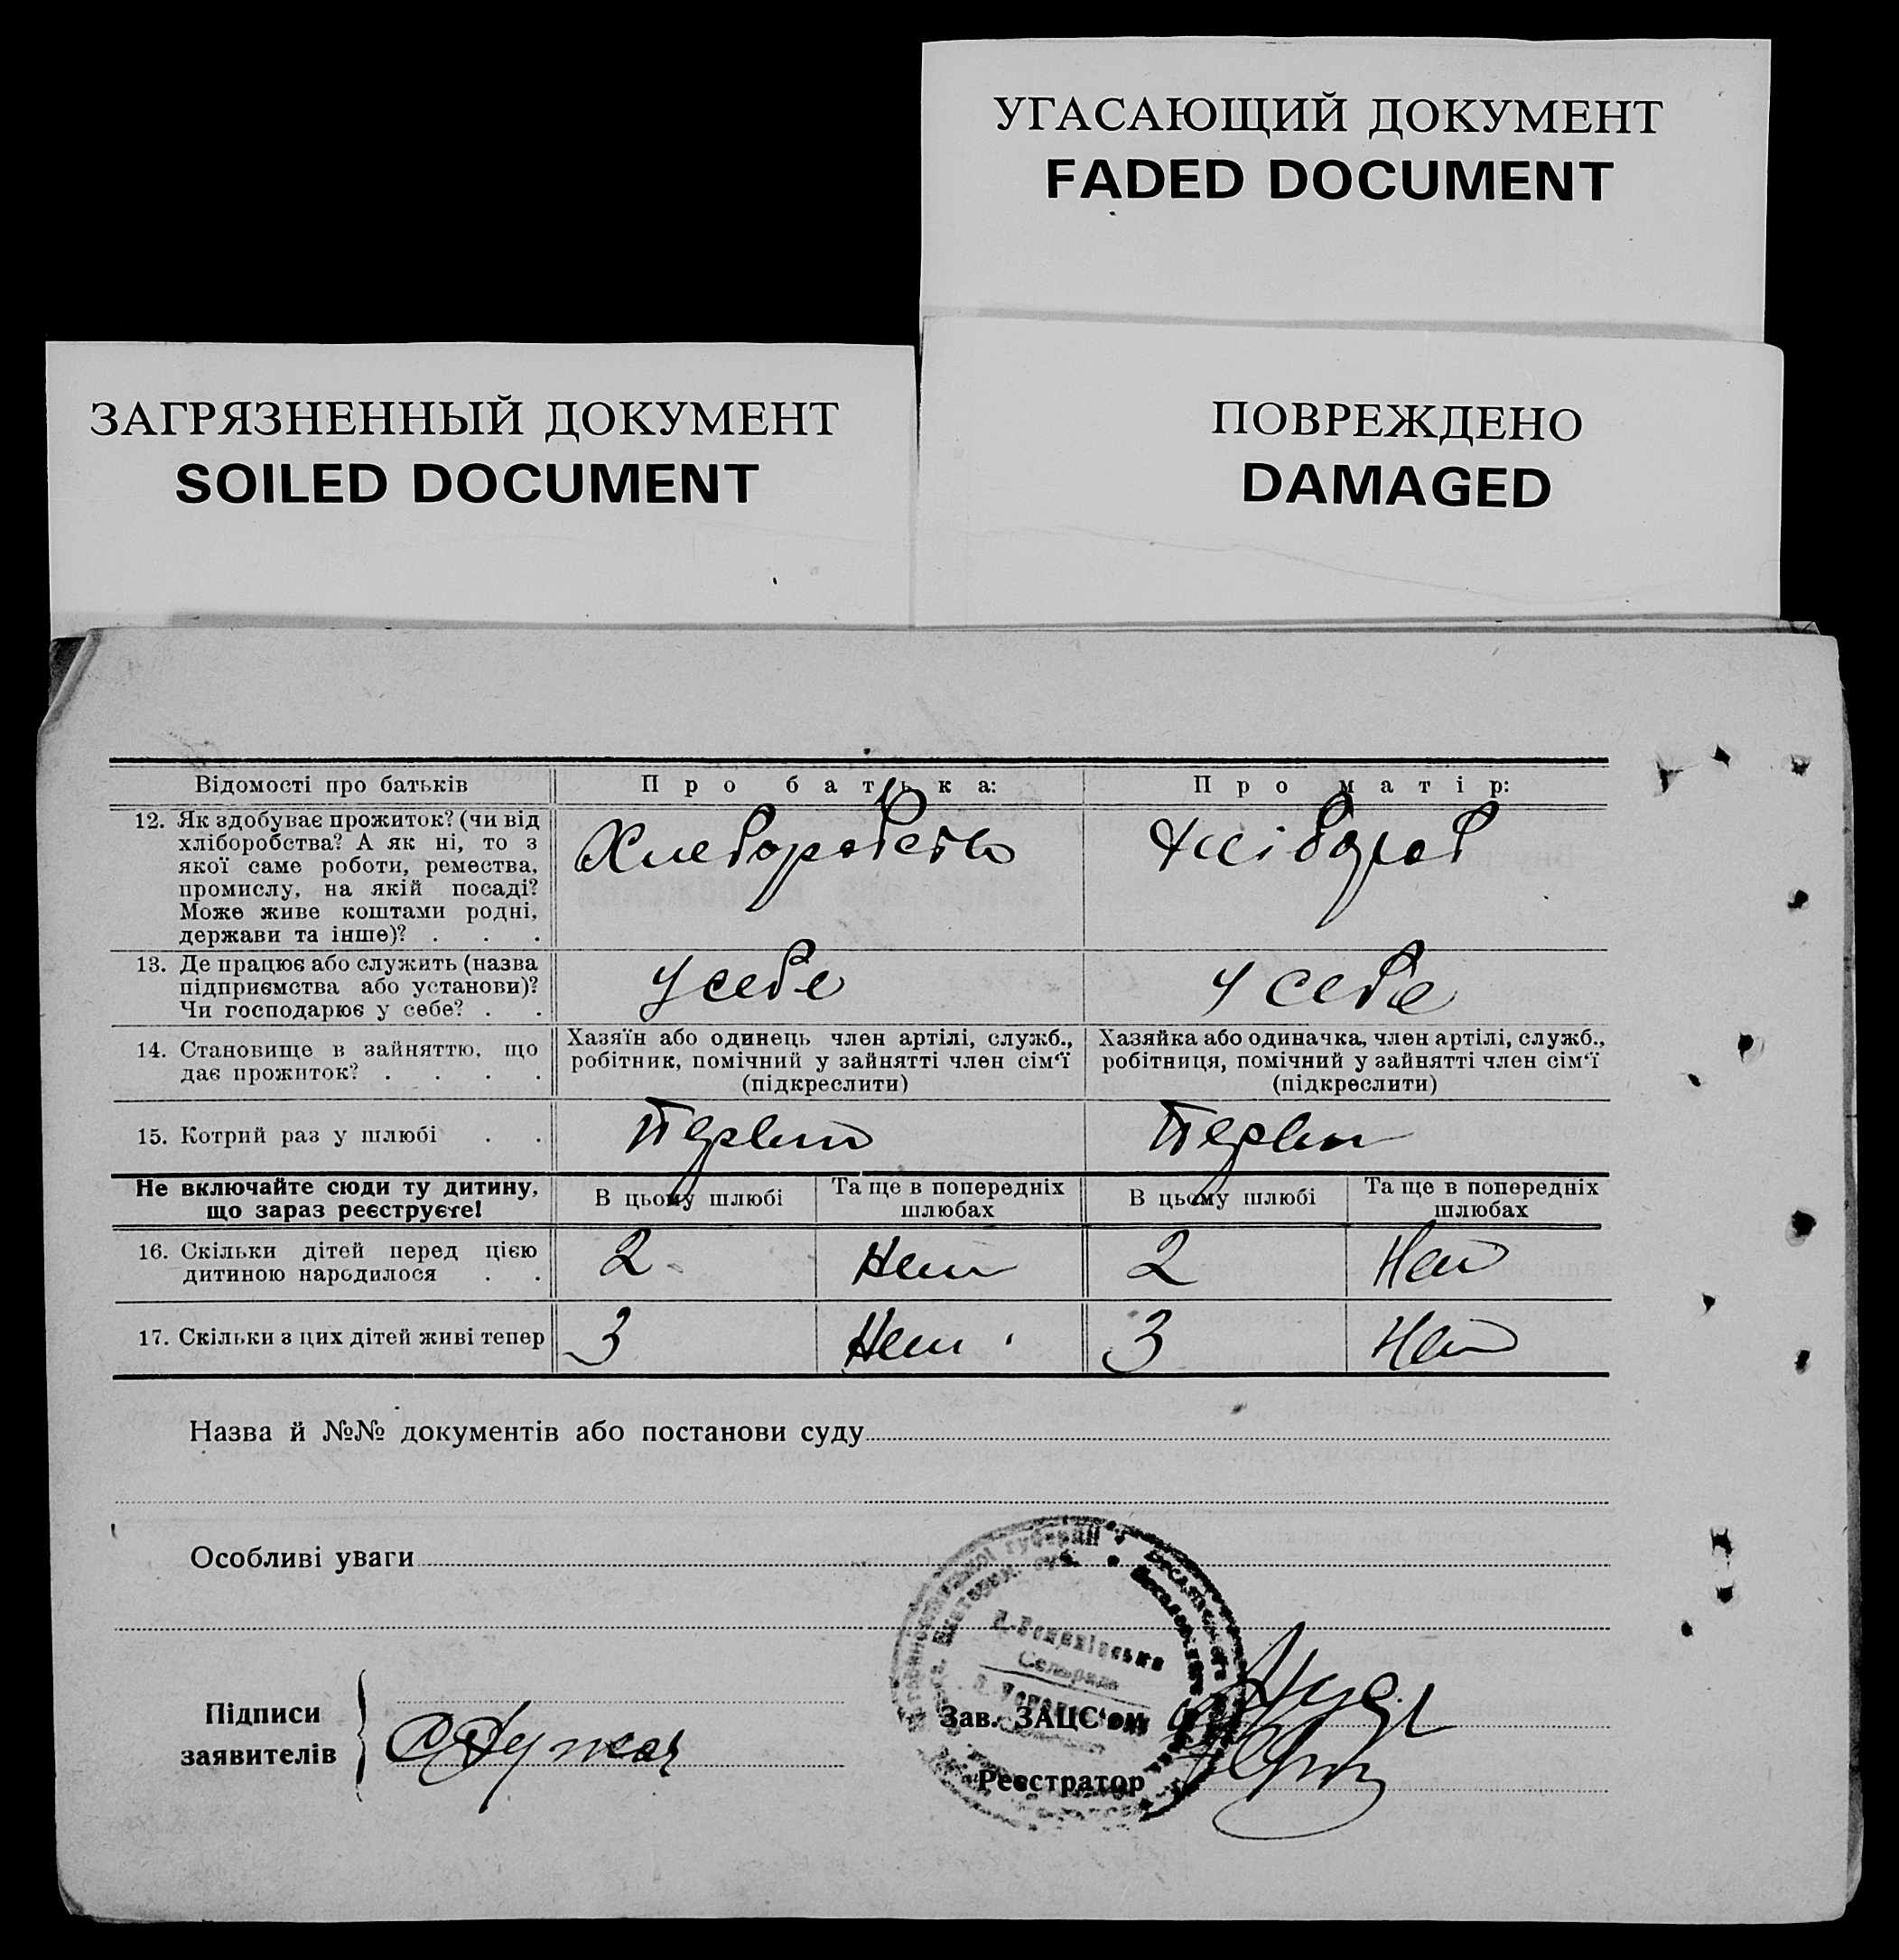 УГАСАЮЩИЙ ДОКУМЕНТ
FADED DOCUMENT
ЗАГРЯЗНЕННЫЙ ДОКУМЕНТ
SOILED DOCUMENT
ПОВРЕЖДЕНО
DAMAGED
Відомості про батьків
Про батька:
Про матір:
12. Як здобуває прожиток? (чи від
хліборобства? А як ні, то з
якої саме роботи, ремества,
промислу, на якій посаді?
Може живе коштами родні,
держави та інше)? . . .
Хлеборобство
Хлібороб
13. Де працює або служить (назва
підприємства або установи)?
Чи господарює у себе? . .
у себе
у себе
14. Становище в зайняттю, що
дає прожиток? . . . .
Хазяїн або одинець член артілі, служб.,
робітник, помічний у зайнятті член сім'ї
(підкреслити)
Хазяйка або одиначка, член артілі, служб.,
робітниця, помічний у зайнятті член сім'ї
(підкреслити)
15. Котрий раз у шлюбі . .
Первий
Первий
Не включайте сюди ту дитину,
що зараз реєструєте!
В цьому шлюбі
Та ще в попередніх
шлюбах
В цьому шлюбі
Та ще в попередніх
шлюбах
16. Скільки дітей перед цією
дитиною народилося . .
2
Нет
2
Нет
17. Скільки з цих дітей живі тепер
3
Нет
3
Нет
Назва й №№ документів або постанови суду
Особливі уваги
Підписи
заявителів
Зав. ЗАЦС'ом
Реєстратор